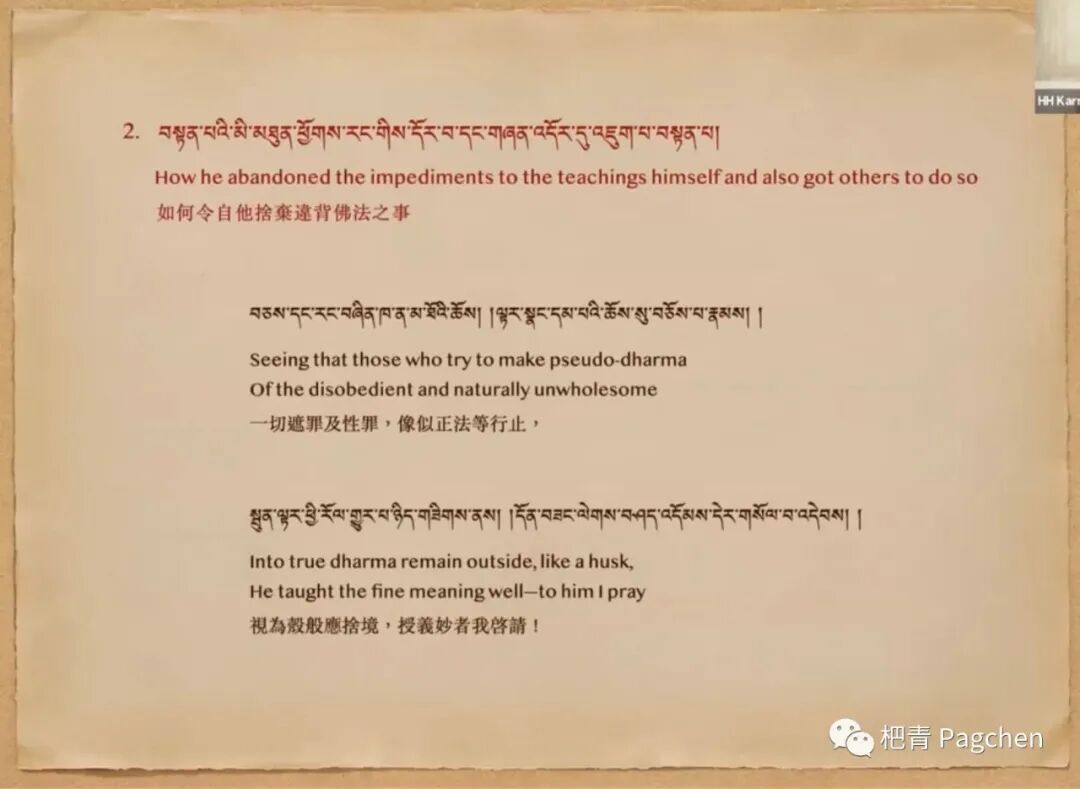 HH Kar
2. བསྟན་པའི་མི་མཐུན་ཕྱོགས་རང་གིས་དོར་བ་དང་གཞན་འདོར་དུ་འཇུག་པ་བསྟན་པ།
How he abandoned the impediments to the teachings himself and also got others to do so
如何令自他捨棄違背佛法之事
བཅས་དང་རང་བཞིན་ཁ་ན་མ་ཐོའི་ཆོས། །ལྟར་སྣང་དམ་པའི་ཆོས་སུ་བཅོས་པ་རྣམས། །
Seeing that those who try to make pseudo-dharma
Of the disobedient and naturally unwholesome
一切遮罪及性罪，像似正法等行止，
སྤུན་ལྟར་ཕྱི་རོལ་གྱུར་པ་ཉིད་གཟིགས་ནས། །དོན་བཟང་ལེགས་བཤད་འདོམས་དེར་གསོལ་བ་འདེབས། །
Into true dharma remain outside, like a husk,
He taught the fine meaning well—to him I pray
視為殼般應捨境，授義妙者我啓請！
杷青 Pagchen